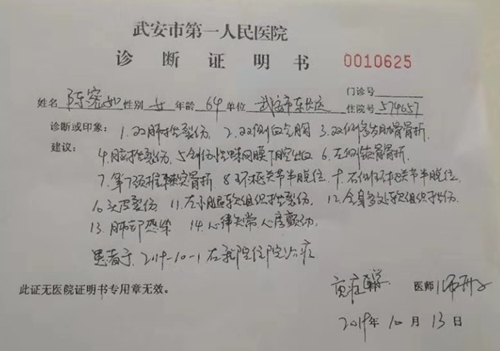 武安市第一人民医院
诊断证明书 0010625
门诊号
姓名 陈 如 性别 女 年龄 64 单位 武安市 住院号 574657
诊断或印象: 1.双肺挫裂伤 2.双侧血气胸 3.双侧多发肋骨骨折
建议: 4.脑挫裂伤 5.创伤性蛛网膜下腔出血 6.左侧锁骨骨折
7.第7颈椎棘突骨折 8.环枢关节半脱位 9.右侧 关节半脱位
10.头皮裂伤 11.左小腿软组织挫裂伤 12.全身多处软组织挫伤
13.肺部感染 14.心律失常 心房颤动
患者于2019-10-1在我院住院治疗
此证无医院证明书专用章无效。 医师
2019年10月13日